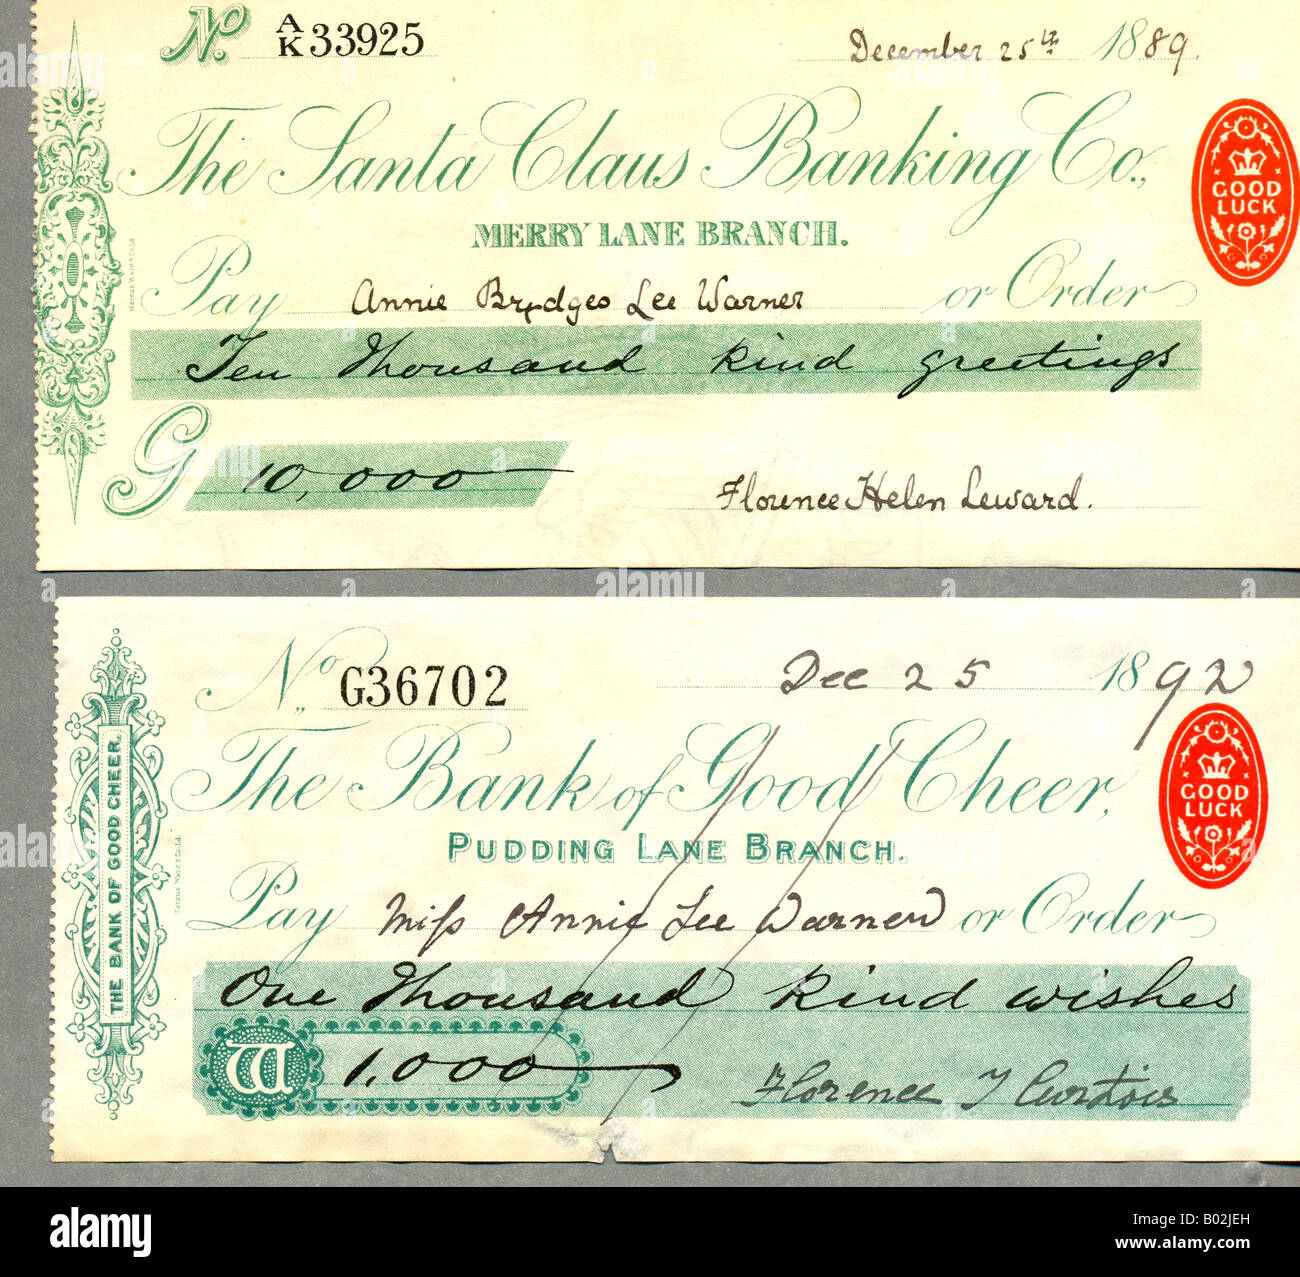 No. A/K 33925
December 25th 1889.
The Santa Claus Banking Co.,
MERRY LANE BRANCH.
GOOD LUCK
Pay Annie Brydges Lee Warner or Order
Ten Thousand kind greetings
G 10,000
Florence Helen Leward.
Marcus Ward & Co. Ld.
No. G36702
Dec 25 1892
The Bank of Good Cheer,
PUDDING LANE BRANCH.
GOOD LUCK
THE BANK OF GOOD CHEER.
Marcus Ward & Co. Ld.
Pay Miss Annie Lee Warner or Order
One Thousand kind wishes
W 1,000
Florence J Curtois
alamy
Image ID: B02JEH
www.alamy.com